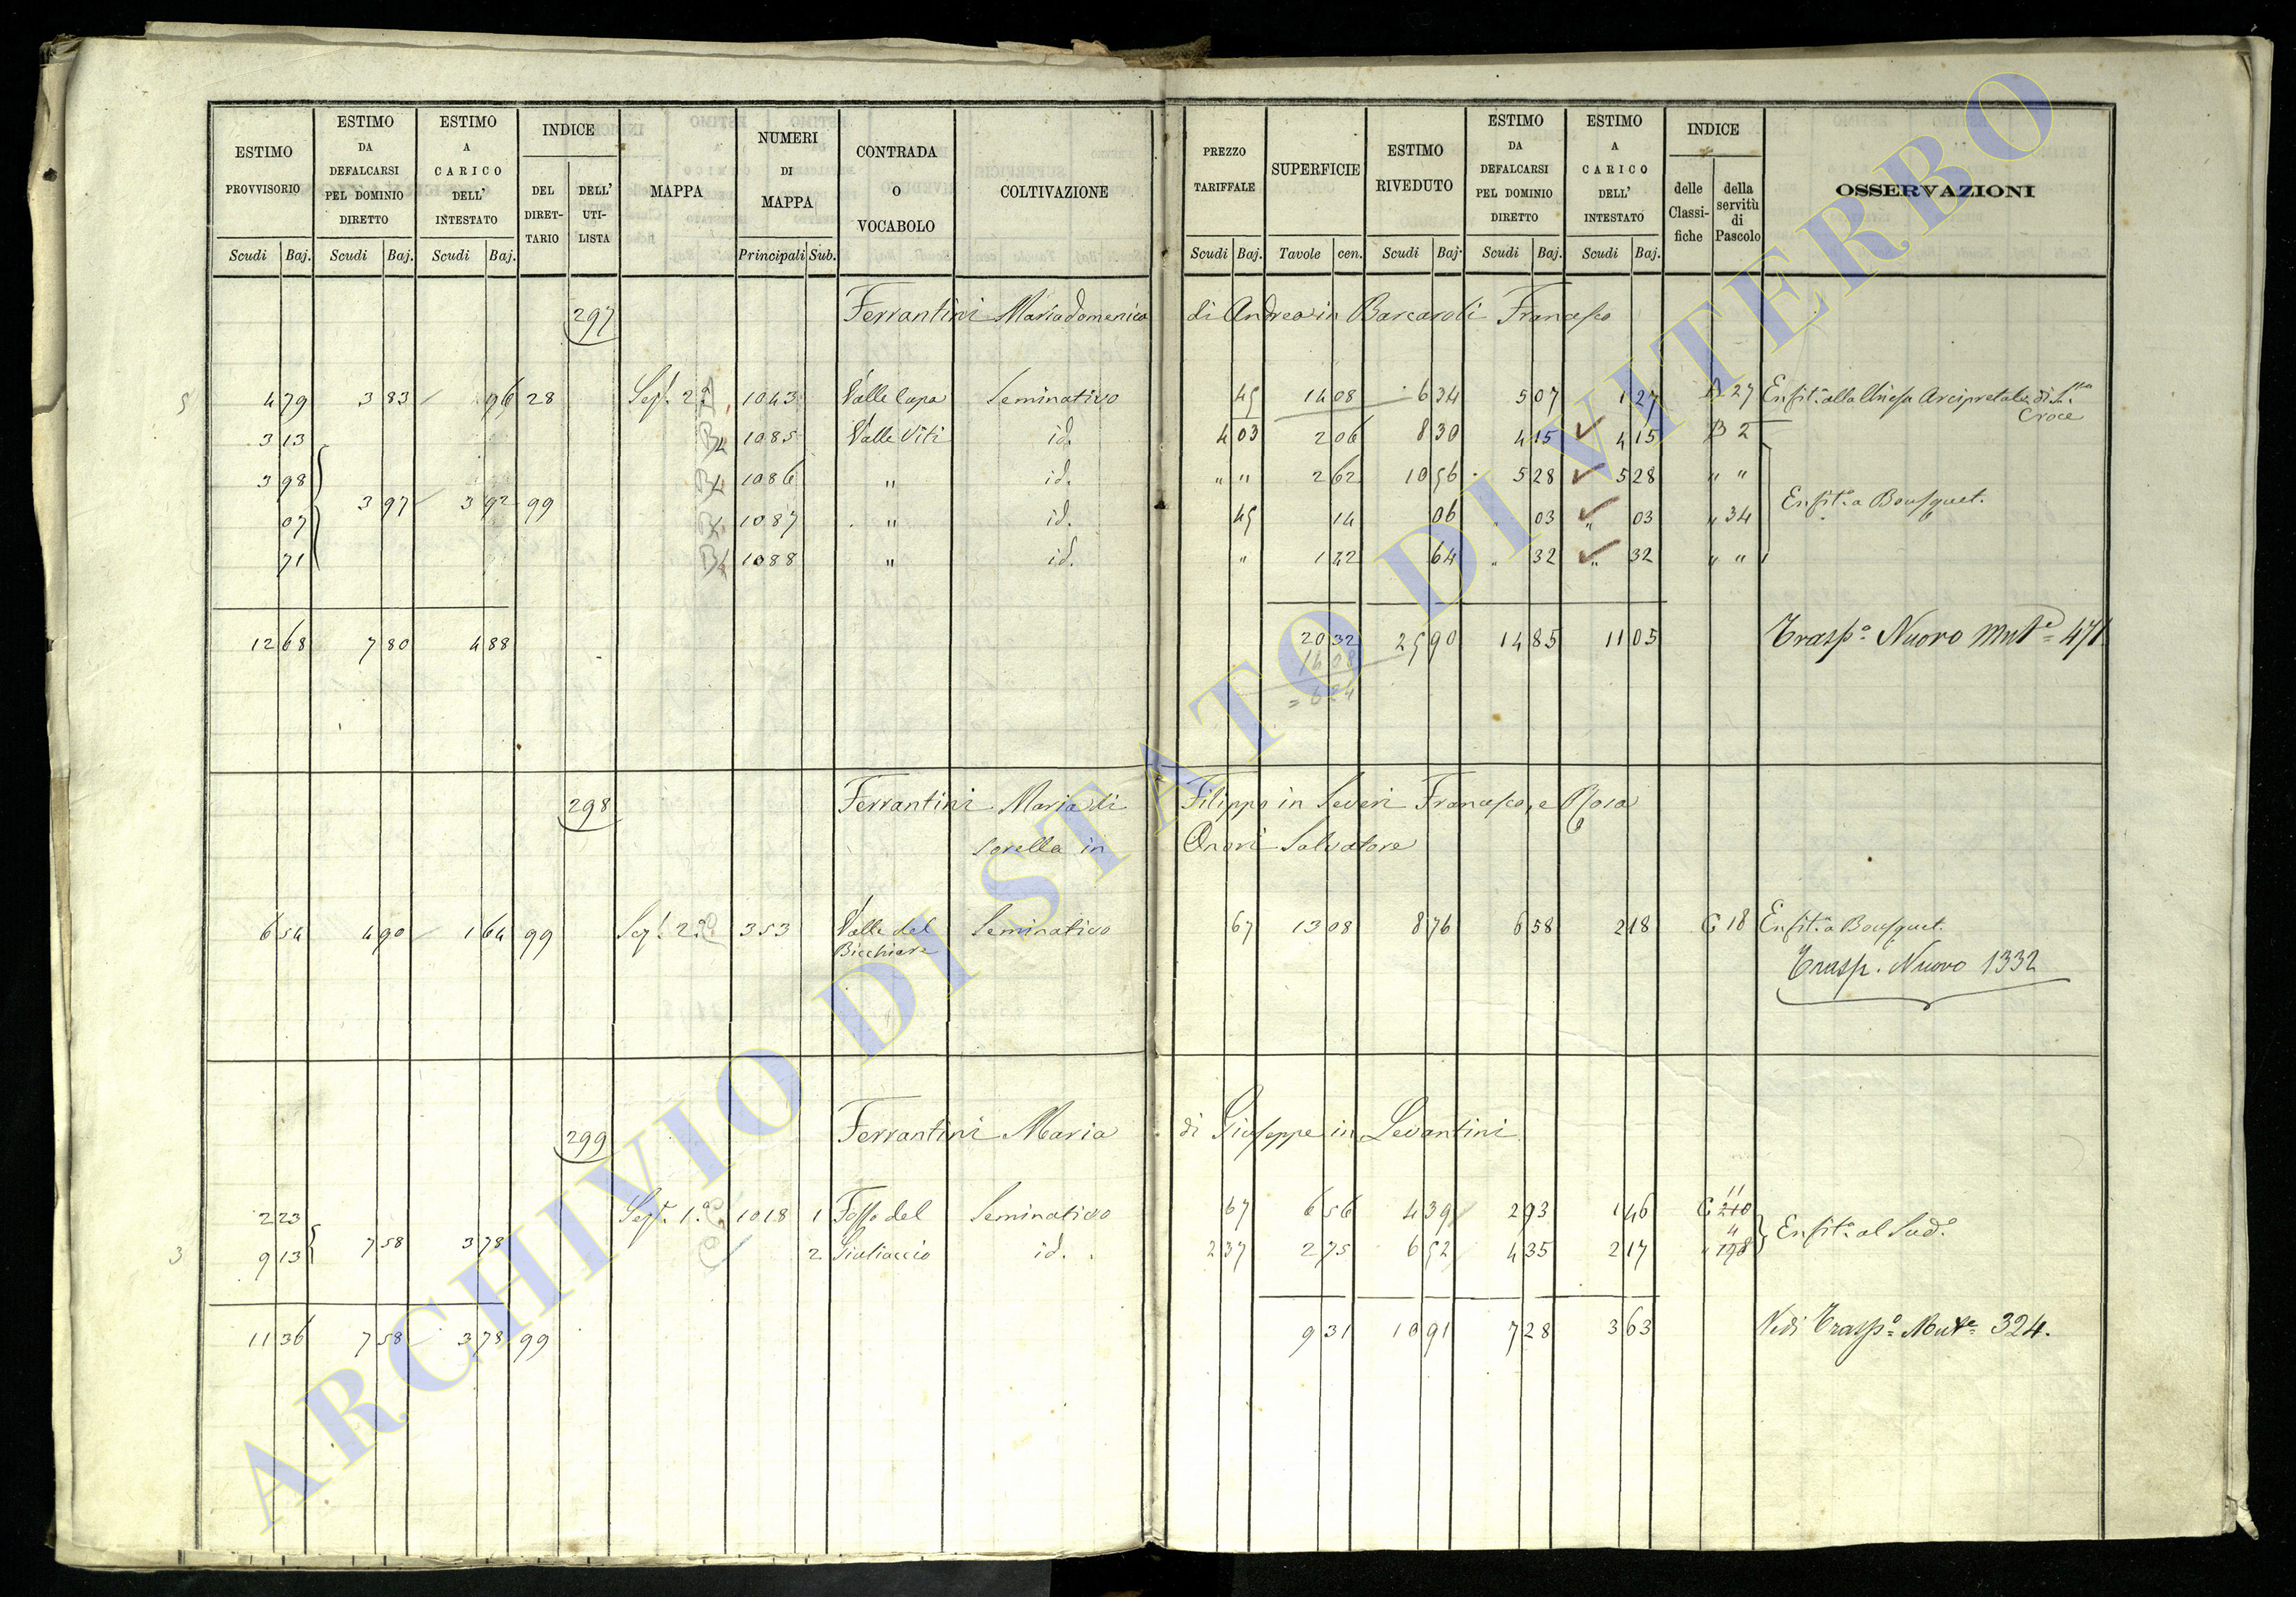 ESTIMO PROVVISORIO | ESTIMO DA DEFALCARSI PEL DOMINIO DIRETTO | ESTIMO A CARICO DELL' INTESTATO | INDICE | MAPPA | NUMERI DI MAPPA | CONTRADA O VOCABOLO | COLTIVAZIONE | PREZZO TARIFFALE | SUPERFICIE | ESTIMO RIVEDUTO | ESTIMO DA DEFALCARSI PEL DOMINIO DIRETTO | ESTIMO A CARICO DELL' INTESTATO | INDICE | OSSERVAZIONI
DEL DIRETTARIO | DELL' UTILISTA | delle Classifiche | della servitù di Pascolo
Scudi Baj. | Scudi Baj. | Scudi Baj. | Principali Sub. | Scudi Baj. | Tavole cen. | Scudi Baj. | Scudi Baj. | Scudi Baj.
297 Ferrantini Mariadomenica di Andrea in Barcaroli Francesco
5 4 79 3 83 96 28 Sez. 2ª 1043 Valle Cupa Seminativo 45 14 08 6 34 5 07 1 27 27 Enfit. alla Chiesa Arcipretale di S. Croce
3 13 B 1085 Valle Viti id. 4 03 2 06 8 30 4 15 4 15 B 2
3 98 B 1086 " id. " " 2 62 10 56 5 28 5 28 " "
3 97 3 92 99 Enfit. a Bousquet.
07 B 1087 " id. 45 14 06 " 03 " 03 " 34
71 B 1088 " id. " 1 42 64 " 32 " 32 " "
12 68 7 80 4 88 20 32 25 90 14 85 11 05 Trasp.º Nuovo Mut.e 471
14 08
= 6 24
298 Ferrantini Maria di Filippo in Severi Francesco, e Rosa
sorella in Onori Salvatore
6 54 4 90 1 64 99 Sez. 2ª 353 Valle del Bicchiere Seminativo 67 13 08 8 76 6 58 2 18 G 18 Enfit. a Bousquet.
Trasp. Nuovo 1332
299 Ferrantini Maria di Giuseppe in Levantini
2 23 Sez. 1ª 1018 1 Fosso del Seminativo 67 6 56 4 39 2 93 1 46 G 210 11
7 58 3 78 Enfit. al Sud.º
3 9 13 2 Giuliaccio id. 2 37 2 75 6 52 4 35 2 17 " 198 4
11 36 7 58 3 78 99 9 31 10 91 7 28 3 63 Vedi Trasp.º Mut.e 324.
ARCHIVIO DI STATO DI VITERBO